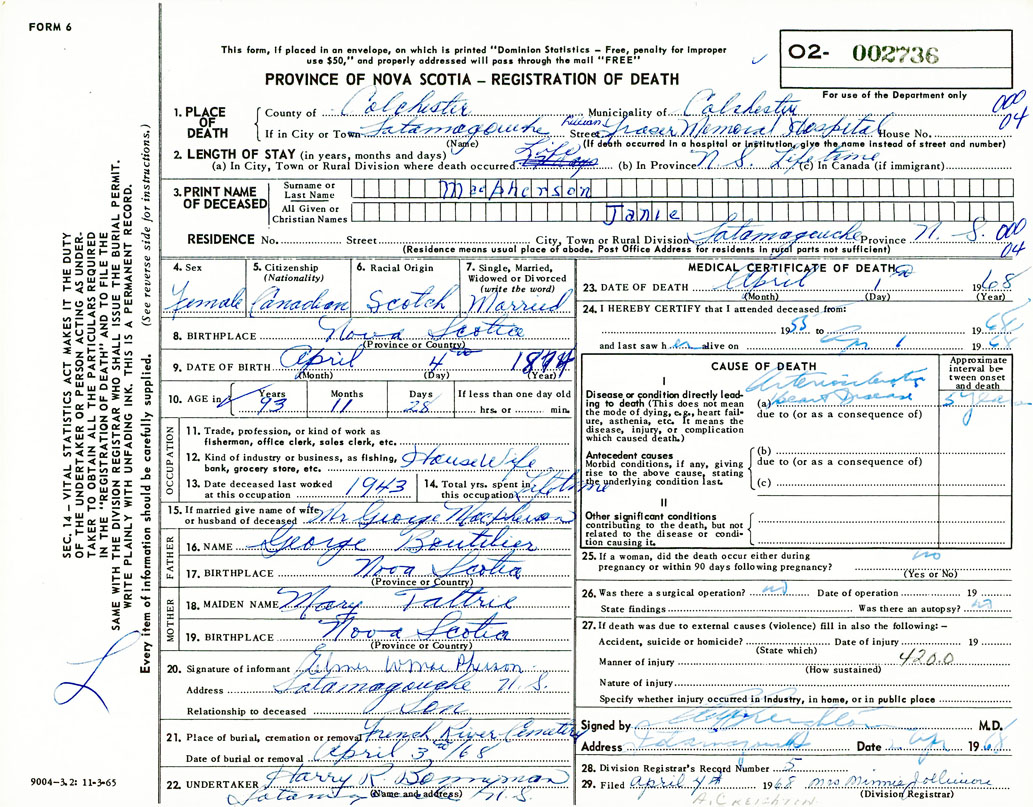 FORM 6
This form, if placed in an envelope, on which is printed "Dominion Statistics – Free, penalty for improper
use $50," and properly addressed will pass through the mail "FREE"
O2- 002736
PROVINCE OF NOVA SCOTIA – REGISTRATION OF DEATH
For use of the Department only
000
04
1. PLACE OF DEATH
County of Colchester Municipality of Colchester
If in City or Town Tatamagouche Street Lillian Fraser Memorial Hospital House No.
(Name) (If death occurred in a hospital or institution, give the name instead of street and number)
2. LENGTH OF STAY (in years, months and days)
(a) In City, Town or Rural Division where death occurred Life (b) In Province N S Lifetime (c) In Canada (if immigrant)
3. PRINT NAME OF DECEASED
Surname or Last Name Macpherson
All Given or Christian Names Janie
RESIDENCE No. Street City, Town or Rural Division Tatamagouche Province N. S.
000
04
(Residence means usual place of abode. Post Office Address for residents in rural parts not sufficient)
4. Sex Female
5. Citizenship (Nationality) Canadian
6. Racial Origin Scotch
7. Single, Married, Widowed or Divorced (write the word) Married
8. BIRTHPLACE Nova Scotia
(Province or Country)
9. DATE OF BIRTH April 4th 1874
(Month) (Day) (Year)
10. AGE in Years 93 Months 11 Days 28 If less than one day old hrs. or min.
OCCUPATION
11. Trade, profession, or kind of work as
fisherman, office clerk, sales clerk, etc.
12. Kind of industry or business, as fishing,
bank, grocery store, etc. House Wife
13. Date deceased last worked at this occupation 1943
14. Total yrs. spent in this occupation Lifetime
15. If married give name of wife or husband of deceased Mr George Macpherson
FATHER
16. NAME George Boutilier
17. BIRTHPLACE Nova Scotia
(Province or Country)
MOTHER
18. MAIDEN NAME Mary Tattrie
19. BIRTHPLACE Nova Scotia
(Province or Country)
20. Signature of informant Elmer
Address Tatamagouche N.S.
Relationship to deceased Son
21. Place of burial, cremation or removal French River Cemetery
Date of burial or removal April 3rd/68
22. UNDERTAKER Harry R. Bonnyman
Tatamagouche N.S.
(Name and address)
MEDICAL CERTIFICATE OF DEATH
23. DATE OF DEATH April 1 1968
(Month) (Day) (Year)
24. I HEREBY CERTIFY that I attended deceased from:
1955 to Apr 1 1968
and last saw her alive on 1968
CAUSE OF DEATH
Approximate interval between onset and death
I
Disease or condition directly leading to death (This does not
mean the mode of dying, e.g., heart failure, asthenia, etc. It means the
disease, injury, or complication
which caused death.)
(a) Arteriosclerotic Heart Disease 5 years
due to (or as a consequence of)
Antecedent causes
Morbid conditions, if any, giving
rise to the above cause, stating
the underlying condition last.
(b)
due to (or as a consequence of)
(c)
II
Other significant conditions
contributing to the death, but not
related to the disease or condition causing it.
25. If a woman, did the death occur either during
pregnancy or within 90 days following pregnancy? no
(Yes or No)
26. Was there a surgical operation? no Date of operation 19
State findings Was there an autopsy? no
27. If death was due to external causes (violence) fill in also the following: –
Accident, suicide or homicide? Date of injury 19
(State which)
Manner of injury 420.0
(How sustained)
Nature of injury
Specify whether injury occurred in industry, in home, or in public place
Signed by M.D.
Address Tatamagouche Date Apr 1968
28. Division Registrar's Record Number 5
29. Filed April 4th 1968 Mrs Minnie Jollimore
(Division Registrar)
A. CREIGHTON
SEC. 14 – VITAL STATISTICS ACT MAKES IT THE DUTY
OF THE UNDERTAKER OR PERSON ACTING AS UNDER-
TAKER TO OBTAIN ALL THE PARTICULARS REQUIRED
IN THE "REGISTRATION OF DEATH" AND TO FILE THE
SAME WITH THE DIVISION REGISTRAR WHO SHALL ISSUE THE BURIAL PERMIT.
WRITE PLAINLY WITH UNFADING INK. THIS IS A PERMANENT RECORD.
Every item of information should be carefully supplied. (See reverse side for instructions.)
9004–3.2: 11-3-65